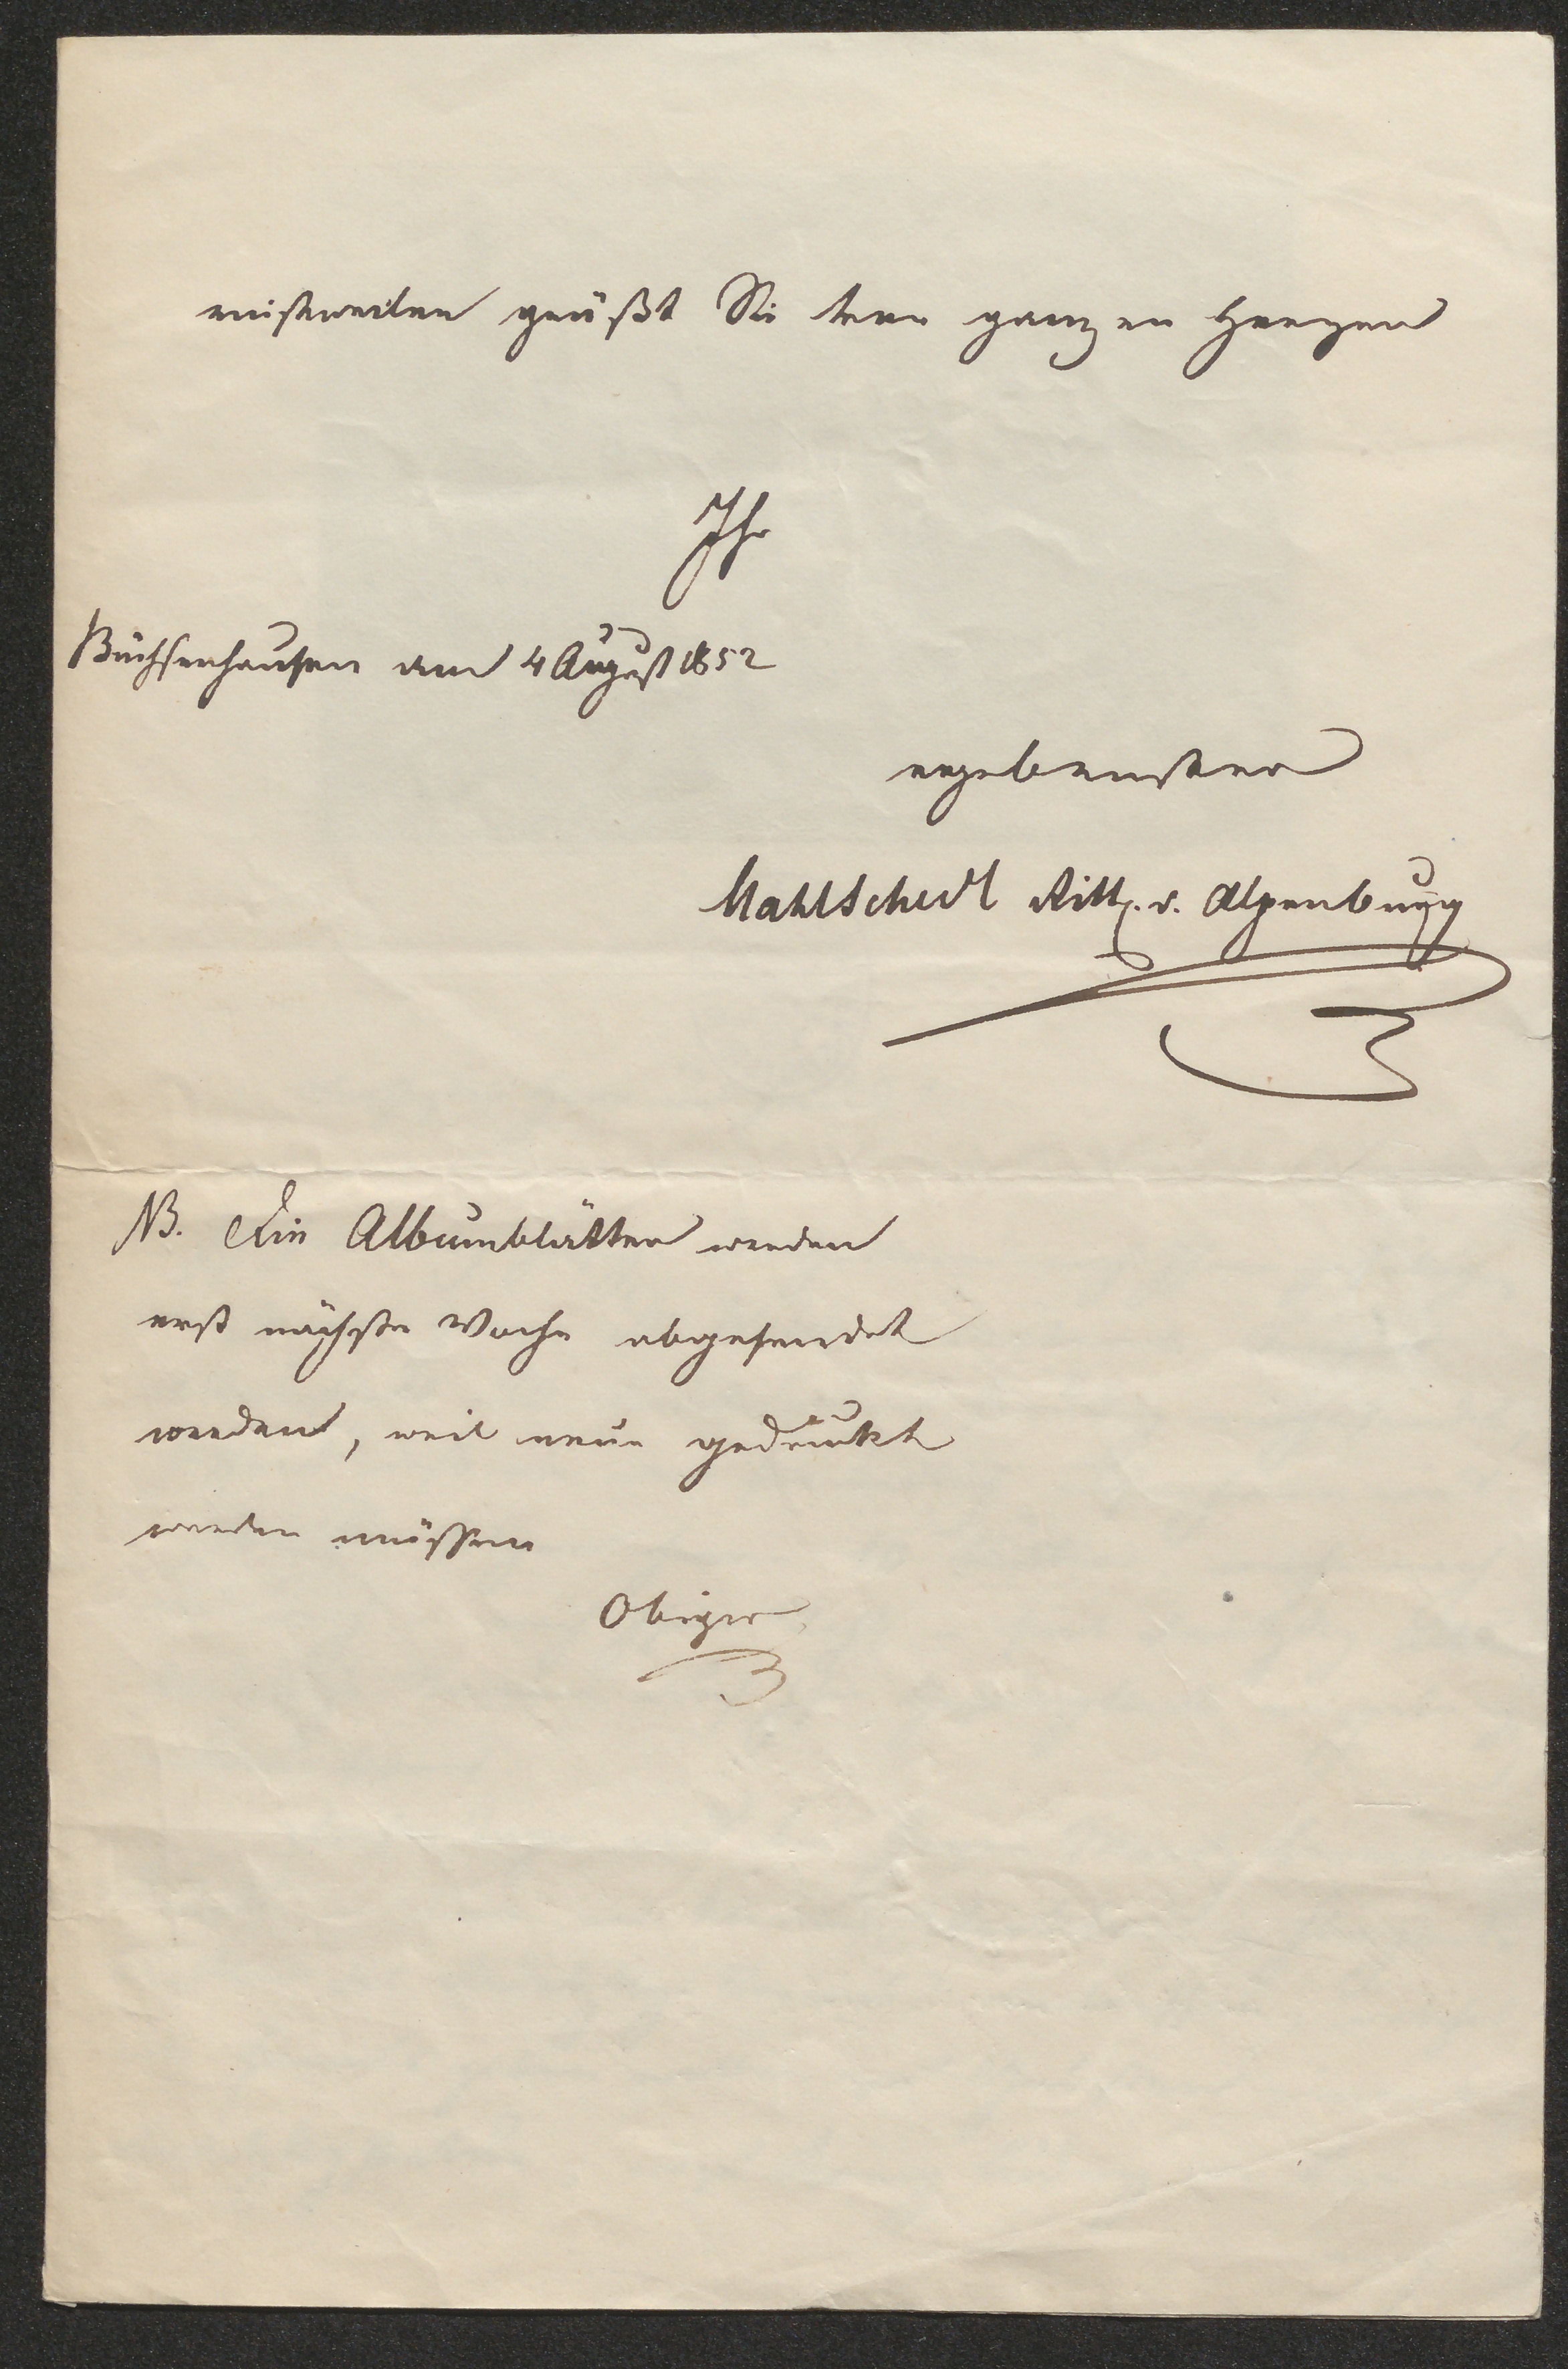 einstweilen grüßt Sie vom ganzen Herzen
Ihr
Büchsenhausen am 4 August 1852
ergebenster
Mahlschedl Ritt. v. Alpenburg
NB. Die Albumblätter werden
erst nächste Woche abgesendet
werden, weil neue gedruckt
werden müssen
Obiger